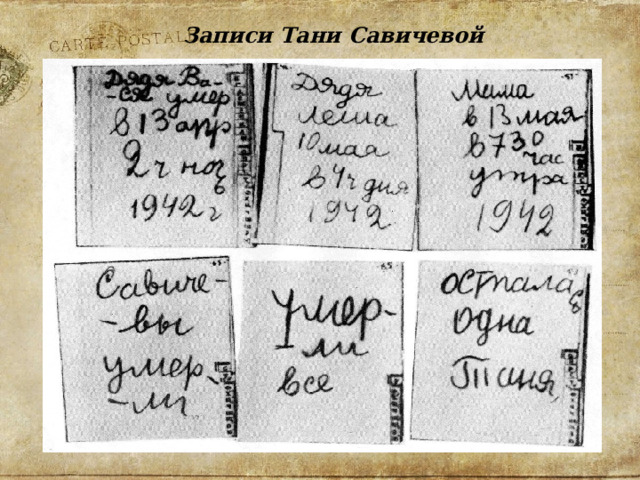 Записи Тани Савичевой
CARTE POSTALE
Дядя Ва-
-ся умер
в 13 апр
2 ч ноч
6
1942 г
Дядя
Леша
10 мая
в 4 ч дня
1942
Мама
в 13 мая
в 7 30
час
утра
1942
Савиче-
-вы
умер
-ли
умер-
-ли
все
остала
с
одна
Таня